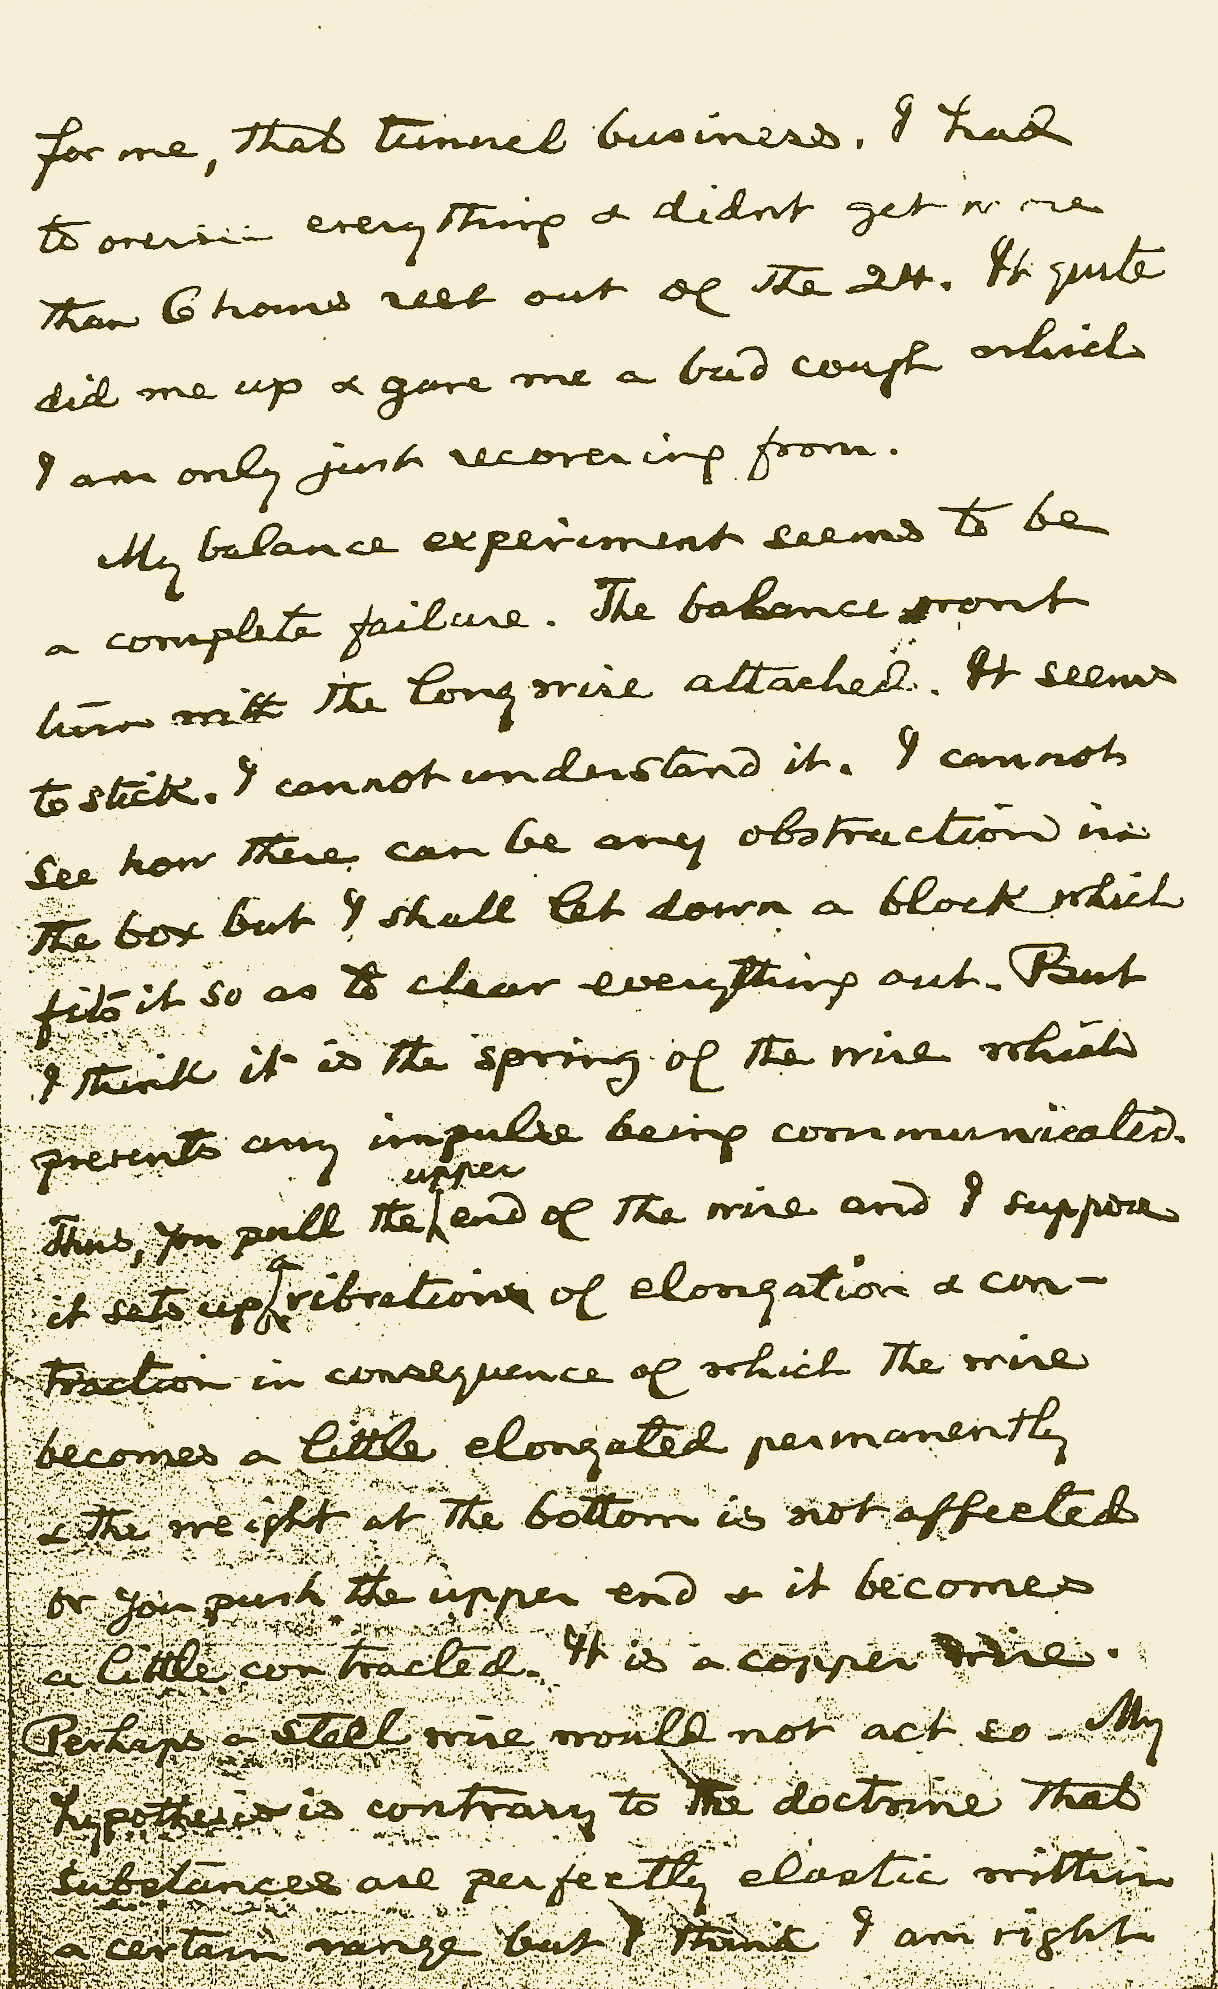 for me, that tunnel business. I had
to oversee everything & didn't get more
than 6 hours rest out of the 24. It quite
did me up & gave me a bad cough which
I am only just recovering from.
My balance experiment seems to be
a complete failure. The balance wont
turn with the long wire attached. It seems
to stick. I cannot understand it. I cannot
see how there can be any obstruction in
the box but I shall let down a block which
fits it so as to clear everything out. But
I think it is the spring of the wire which
prevents any impulse being communicated.
upper
Thus, you pull the end of the wire and I suppose
a
it sets up vibration of elongation & con-
traction in consequence of which the wire
becomes a little elongated permanently
& the weight at the bottom is not affected
or you push the upper end & it becomes
a little contracted. It is a copper wire.
Perhaps a steel wire would not act so - My
hypothesis is contrary to the doctrine that
substances are perfectly elastic within
a certain range but I think I am right